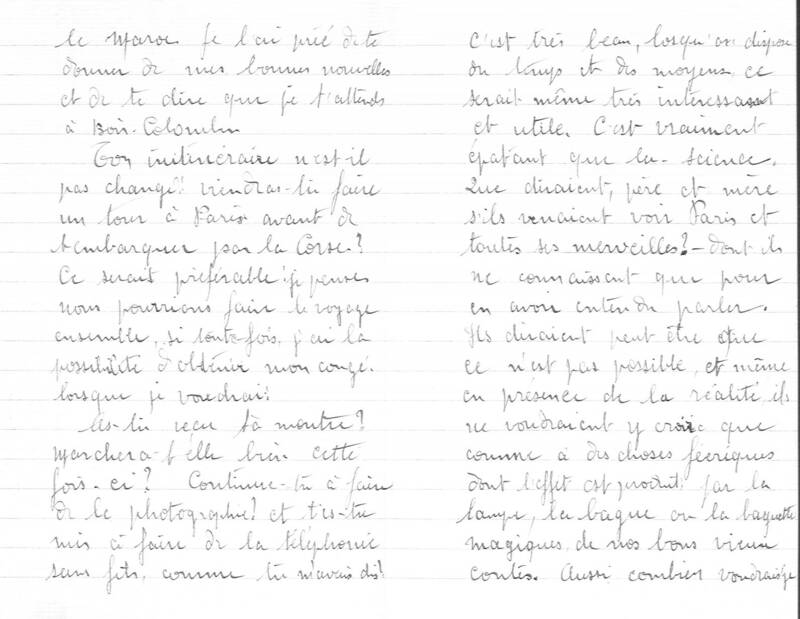 le Maroc. Je l'ai prié de te
donner de mes bonnes nouvelles
et de te dire que je t'attends
à Bois-Colombes
Ton initinéraire n'est-il
pas changé? viendras-tu faire
un tour à Paris avant de
t'embarquer pour la Corse?
Ce serait préférable: je penses
nous pourrions faire le voyage
ensemble, si toute fois, j'ai la
possibilité d'obtenir mon congé.
lorsque je voudrai!
As-tu reçu ta montre?
Marchera-t'elle bien cette
fois-ci? Continue-tu à faire
de la photographie? et t'es-tu
mis à faire de la téléphonie
sans fils, comme tu m'avais dis!
C'est très beau, losqu'on dispose
du temps et des moyens, ce
serait même très intéressant
et utile. C'est vraiment
épatant que la science.
Que diraient, père et mère
s'ils venaient voir Paris et
toutes ses merveilles? - dont ils
ne connaissent que pour
en avoir entendu parler.
Ils diraient peut être que
ce n'est pas possible, et même
en présence de la réalité, ils
ne voudraient y croire que
comme à des choses féeriques
dont l'effet est produit par la
lampe, la bague ou la baguette
magiques de nos bons vieux
contes. Aussi combien voudrais-je